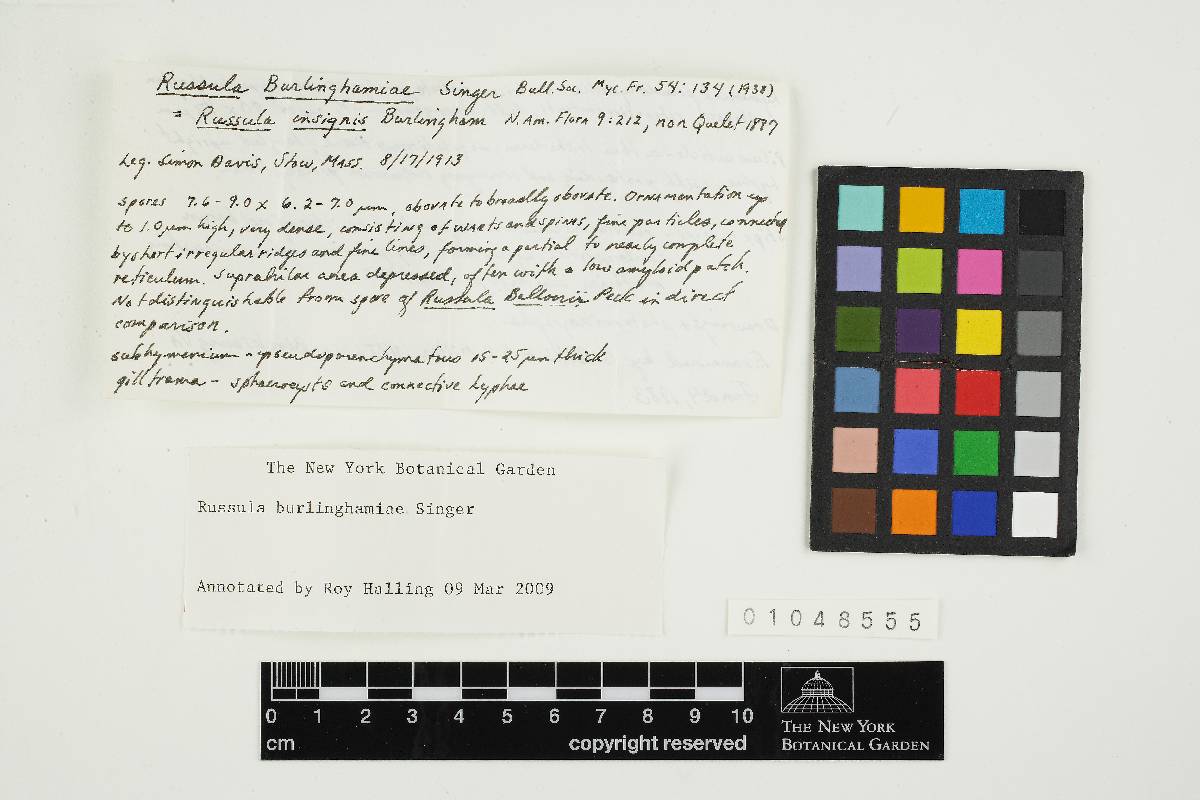 Russula Burlinghamiae Singer Bull. Soc. Myc. Fr. 54: 134 (1938)
= Russula insignis Burlingham N. Am. Flora 9: 212, non Quelet 1887
Leg. Simon Davis, Stow, Mass. 8/17/1913
spores 7.6 - 9.0 x 6.2 - 7.0 µm, obovate to broadly obovate. Ornamentation up
to 1.0 µm high, very dense, consisting of warts and spines, fine particles, connected
by short irregular ridges and fine lines, forming a partial to nearly complete
reticulum. Suprahilar area depressed, often with a low amyloid patch.
Not distinguishable from spore of Russula Ballouii Peck in direct
comparison.
subhymenium - pseudoparenchymatous 15-25 µm thick
gill trama - sphaerocysts and connective hyphae
The New York Botanical Garden
Russula burlinghamiae Singer
Annotated by Roy Halling 09 Mar 2009
01048555
0 1 2 3 4 5 6 7 8 9 10
cm copyright reserved
THE NEW YORK
BOTANICAL GARDEN